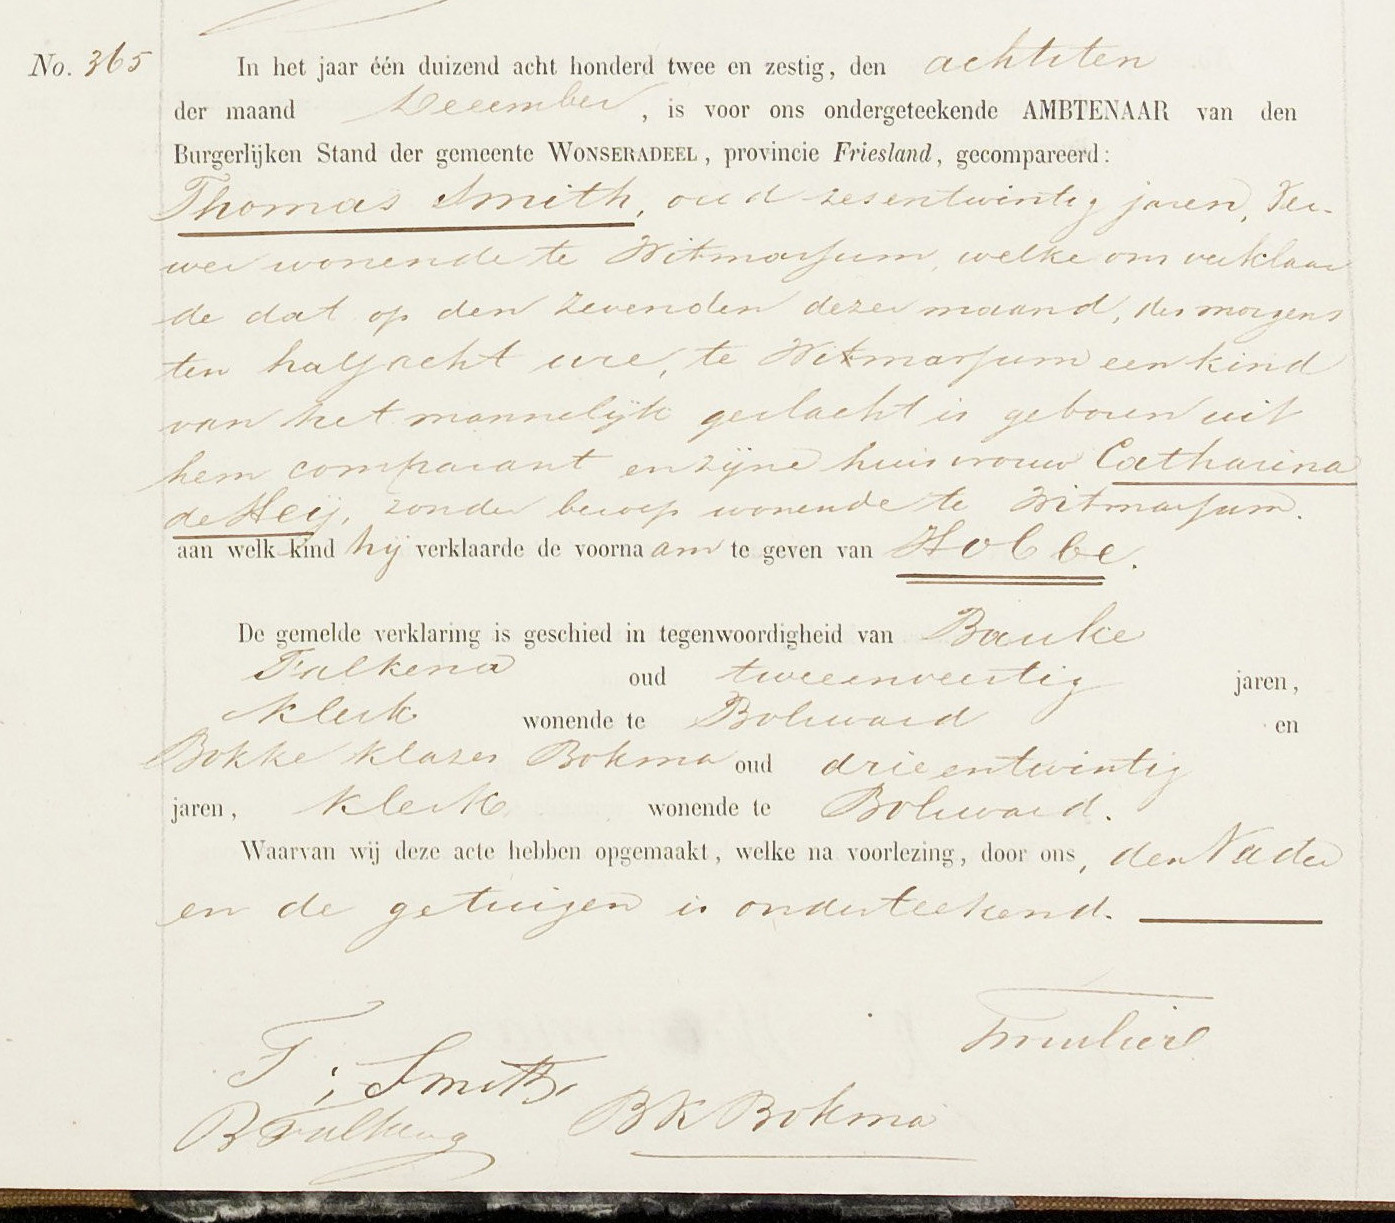 No. 365
In het jaar één duizend acht honderd twee en zestig, den achtsten
der maand December, is voor ons ondergeteekende AMBTENAAR van den
Burgerlijken Stand der gemeente WONSERADEEL, provincie Friesland, gecompareerd:
Thomas Smith, oud zesentwintig jaren, Ver-
wer wonende te Witmarsum, welke ons verklaar
de dat op den zevenden dezer maand, des morgens
ten half acht ure, te Witmarsum een kind
van het mannelijk geslacht is geboren uit
hem comparant en zijne huisvrouw Catharina
de Heij, zonder beroep wonende te Witmarsum.
aan welk kind hij verklaarde de voornaam te geven van Hobbe.
De gemelde verklaring is geschied in tegenwoordigheid van Bauke
Falkena oud tweeenveertig jaren,
klerk wonende te Bolsward en
Bokke Klazes Bokma oud drieentwintig
jaren, klerk wonende te Bolsward.
Waarvan wij deze acte hebben opgemaakt, welke na voorlezing, door ons, den Vader
en de getuigen is onderteekend.
T; Smith
B Falkena BK Bokma